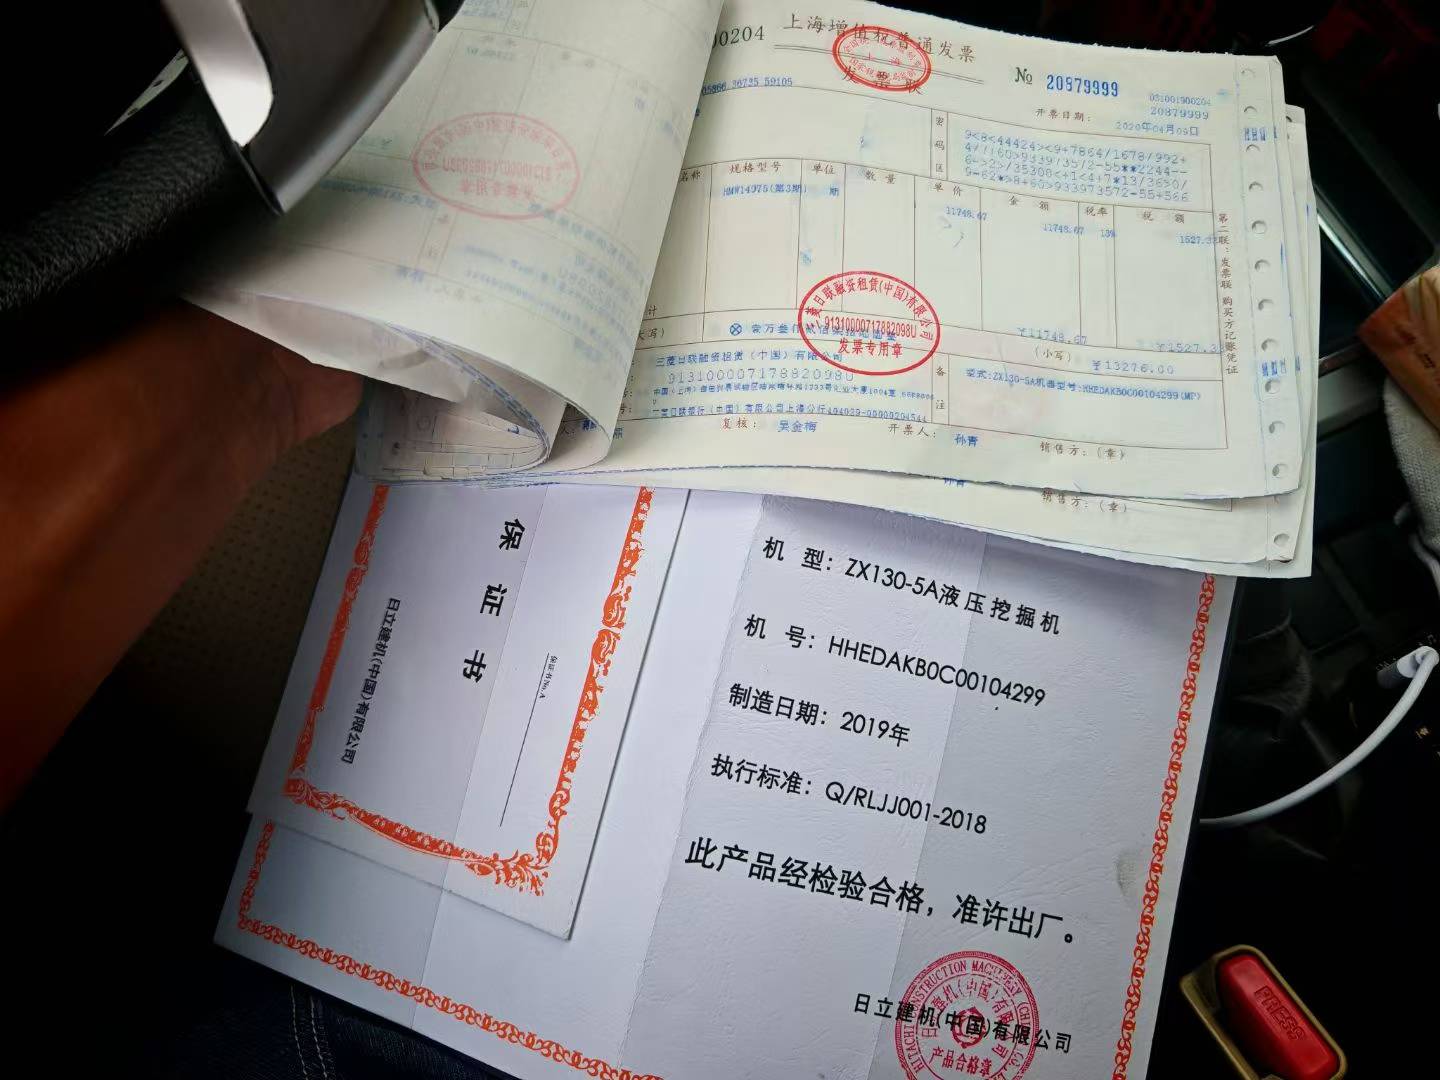 00204
上海增值税普通发票
发票联
№ 20879999
031001900204
20879999
开票日期：
2020年04月09日
密码区
9<8<44424><9+7864/1678/992+
规格型号
单位
数量
单价
金额
税率
税额
HMW14975(第3期)
期
11748.67
11748.67
13%
￥11748.67
(小写)
￥13276.00
三菱日联融资租赁（中国）有限公司
91310000717882098U
备注
型式:ZX130-5A机器型号:HHEDAKB0C00104299(MP)
复核：
吴金梅
开票人：
孙青
销售方：(章)
第二联：发票联 购买方记账凭证
三菱日联融资租赁(中国)有限公司
91310000717882098U
发票专用章
孙青
销售方：(章)
保证书
保证书No.A
日立建机(中国)有限公司
机 型：ZX130-5A液压挖掘机
机 号：HHEDAKB0C00104299
制造日期：2019年
执行标准：Q/RLJJ001-2018
此产品经检验合格，准许出厂。
日立建机(中国)有限公司
产品合格章
PRESS